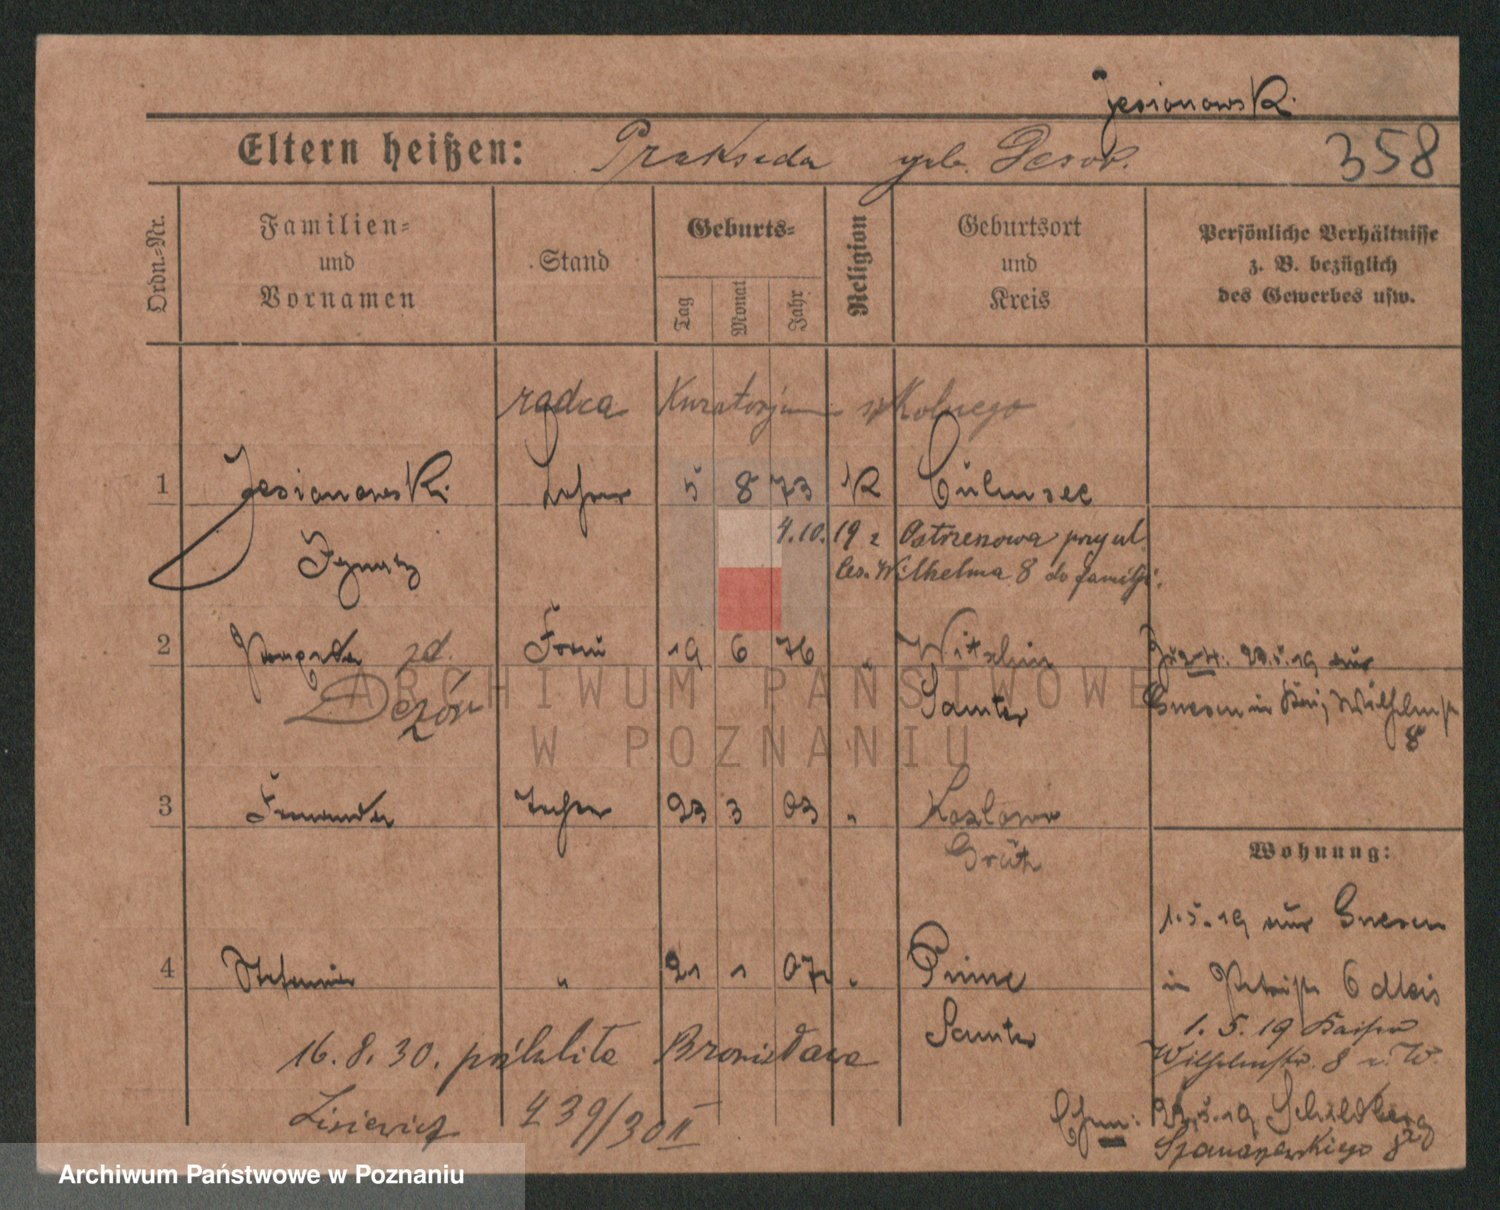 Jesionowski.
Eltern heißen: Prakseda geb. Desor. 358
Ordn.-Nr. Familien- und Vornamen Stand Geburts- Tag Monat Jahr Religion Geburtsort und Kreis Persönliche Verhältnisse z. B. bezüglich des Gewerbes usw.
radca Kuratorjum szkolnego
1 Jesionowski Lehrer 5 8 73 K Culmsee
4.10.19 z Ostrzenowa przy ul.
Ignatz ces. Wilhelma 8 do familji.
2 zd. Frau 19 6 76 " Witzchin 20.5.19 aus
Dezór Samter Gnesen in Wilhelmstr
8
3 Lehrer 23 3 03 " Kozlowo
Grätz
Wohnung:
1.5.19 aus Gnesen
4 Stefanie " 21 1 07 " Pinne in 6
Samter 1. 5. 19 Kaiser
16.8.30. Bronisława Wilhelmstr. 8 W.
Lisiewicz 439/30 II 22.5.19 Schildberg
8
ARCHIWUM PAŃSTWOWE
W POZNANIU
Archiwum Państwowe w Poznaniu